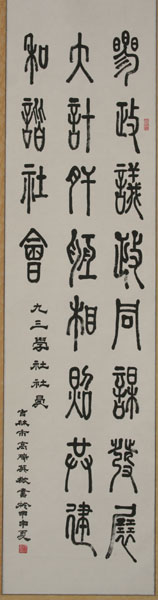 參政議政同謀發展
大計肝膽相照共建
和諧社會
九三學社社員
吉林市高英敬書於甲申夏